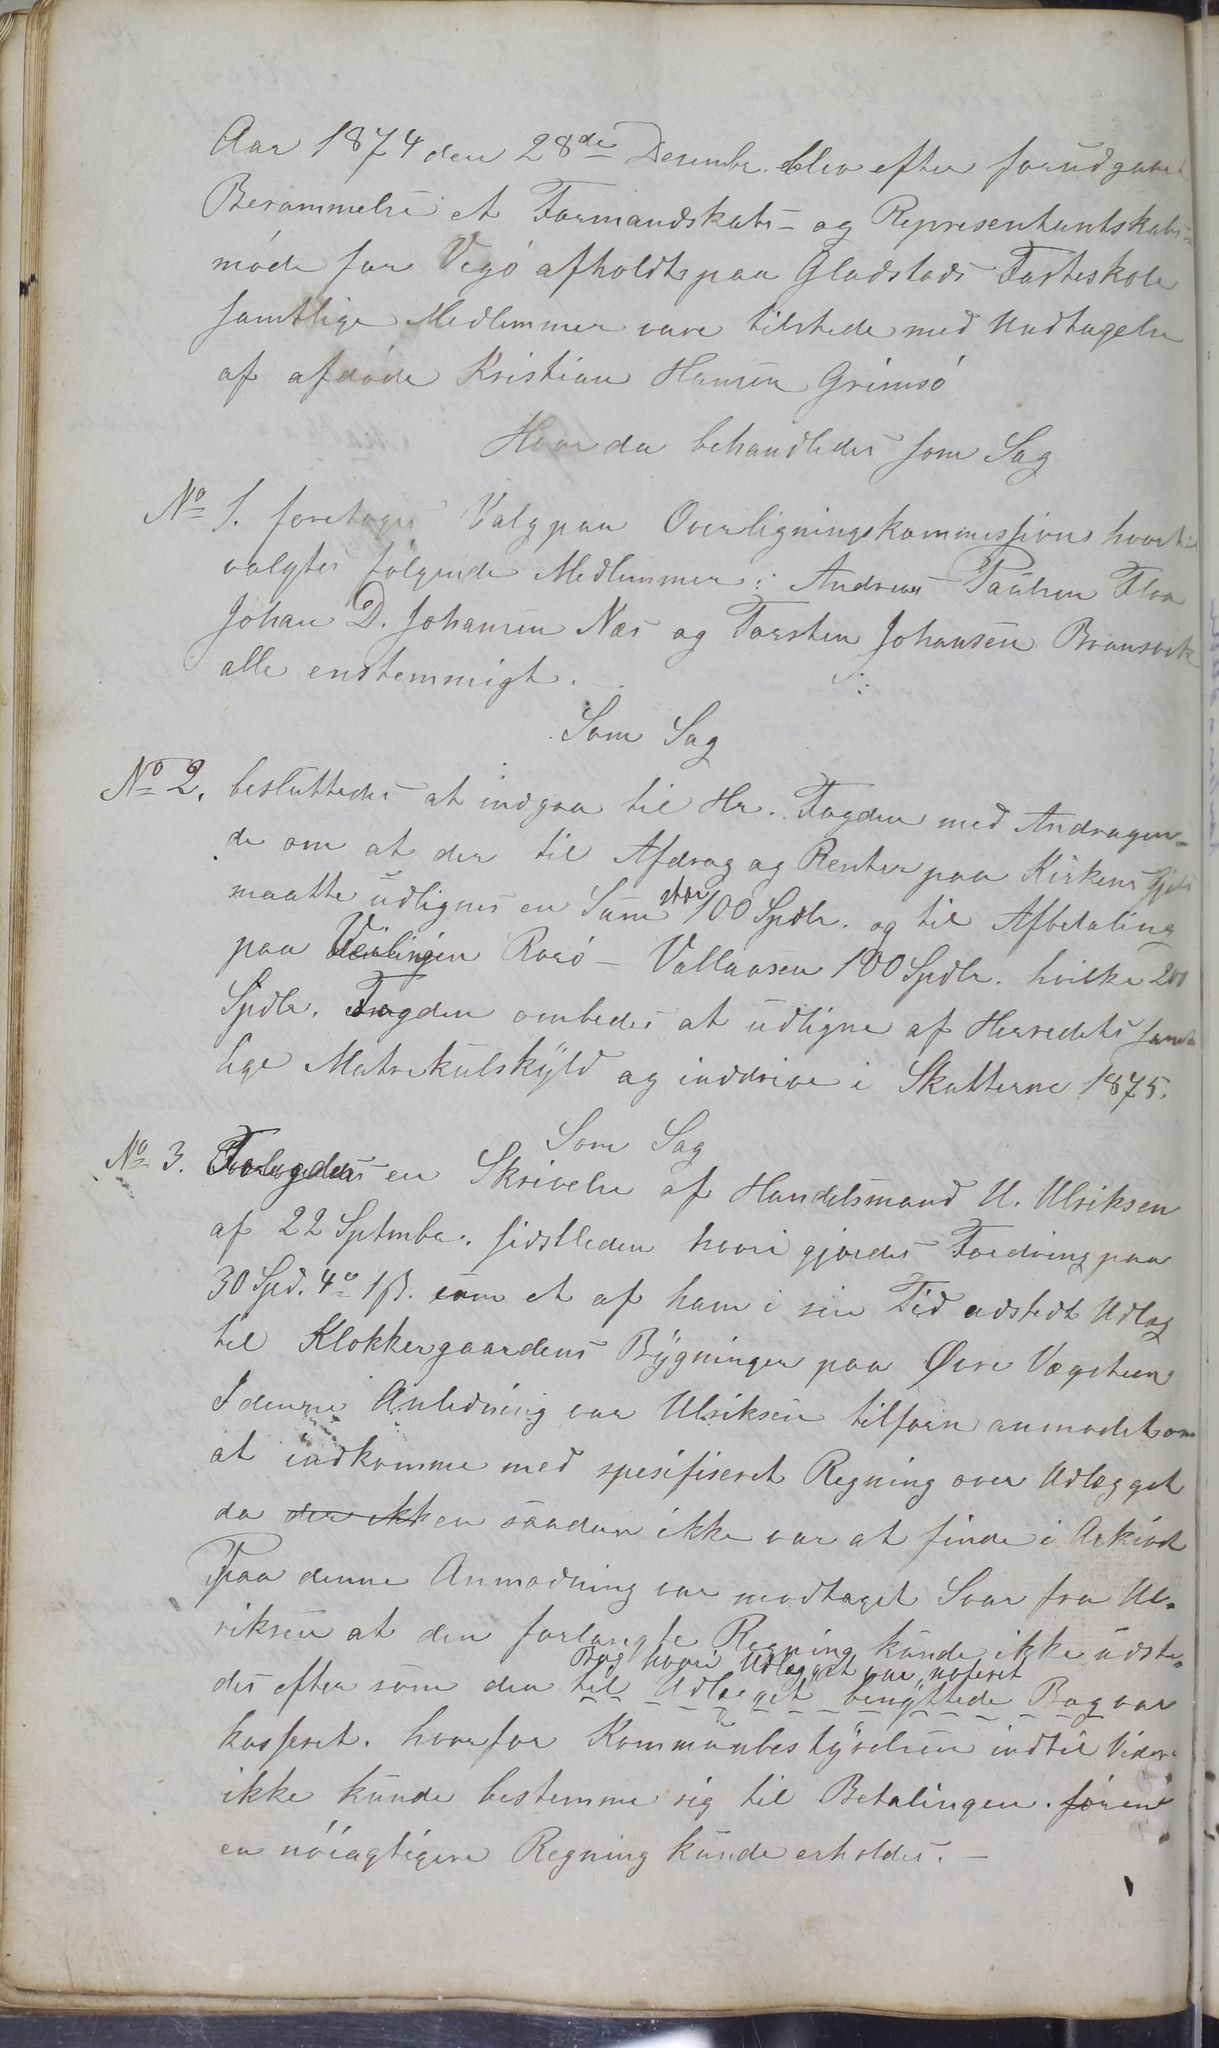 Aar 1874 den 28de Desembr. blev efter forudgaaet
Berammelse et Formandskabs- og Representantskabs-
møde for Vegø afholdt paa Gladstads Fasteskole
samtlige Medlemmer vare tilstede med Undtagelse
af afdøde Kristian Hansen Grimsø
Hvor da behandledes som Sag
No 1. foretoges Valg paa Overligningskommission hvortil
valgtes følgende Medlemmer: Andreas Paulsen Floa
Johan D. Johansen Næs og Torsten Johansen
alle enstemmigt.
Som Sag
No 2. besluttedes at indgaa til Hr. Fogden med Andragen-
de om at der til Afdrag og Renter paa Kirkens Gjeld
maatte udlignes en Sum stor 100 Spdlr. og til Afbetaling
paa Veilinjen Rorø - Vallaasen 100 Spdlr. hvilke 200
Spdlr. Fogden ombedes at udligne af Herredets samt-
lige Matrikulskyld og inddrive i Skatterne 1875.
Som Sag
No 3. Forlagdes en Skrivelse af Handelsmand U. Ulriksen
af 22 Septmbr. sidstleden hvori gjordes Fordring paa
30 Spd. 4o 1 ß. som et af ham i sin Tid udstedt Udlæg
til Klokkergaardens Bygninger paa Øvre Vægsteen
I denne Anledning var Ulriksen tilforn anmodet om
at indkomme med spesifiseret Regning over Udlægget
da der ikk en saadan ikke var at finde i Arkivet
Paa denne Anmodning var modtaget Svar fra Ul-
riksen at den forlangte Regning kunde ikke udste-
Bog hvori Udlægget var noteret
des efter som den til Udlægget benyttede Bog var
kasseret. hvorfor Kommunbestyrelsen indtil Videre
ikke kunde bestemme sig til Betalingen. førend
en nøiagtigere Regning kunde erholdes. -